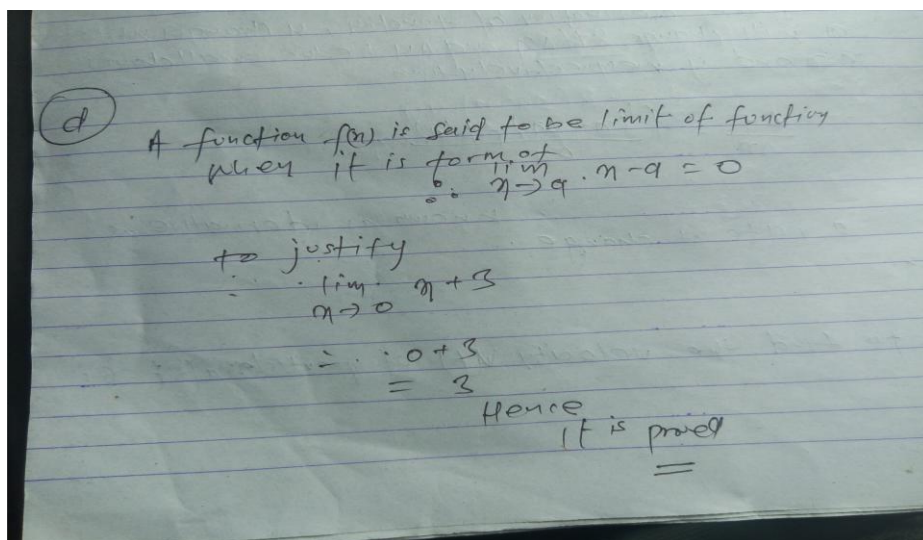 d
A function f(n) is said to be limit of function
when it is form of
∴ lim n→a . n-a = 0
to justify
∴ . lim . n+3
n→0
= . 0+3
= 3
Hence
it is proved